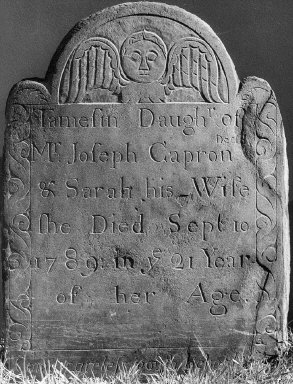 Tamesin Daughr. of
Mr. Joseph Capron Decr
& Sarah his Wife
she Died Sept 10
1789 in ye 21 Year
of her Age.